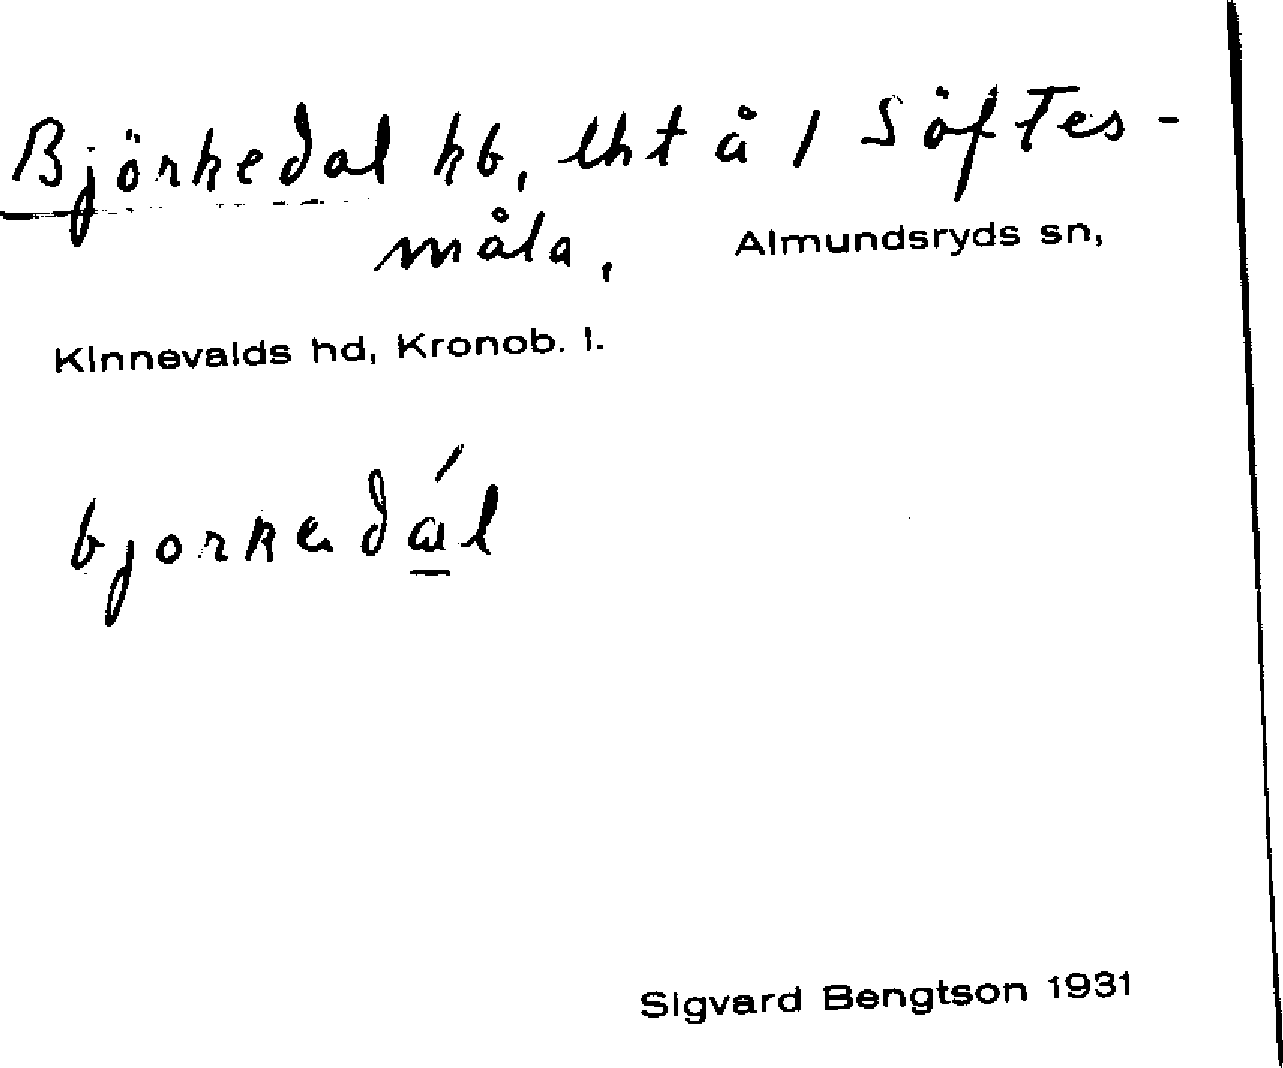 Björkedal hb, lht å 1 Söftes-
måla, Almundsryds sn,
Kinnevalds hd, Kronob. l.
bjorkadál
Sigvard Bengtson 1931